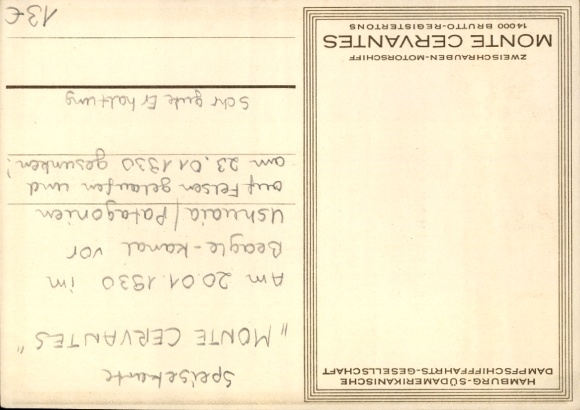 HAMBURG-SÜDAMERIKANISCHE
DAMPFSCHIFFFAHRTS-GESELLSCHAFT
ZWEISCHRAUBEN-MOTORSCHIFF
MONTE CERVANTES
14000 BRUTTO-REGISTERTONS
Speisekarte
"MONTE CERVANTES"
Am 20.01.1930 im
Beagle-Kanal vor
Ushuaia/Patagonien
auf Felsen gelaufen und
am 23.01.1930 gesunken!
Sehr gute Erhaltung
13€